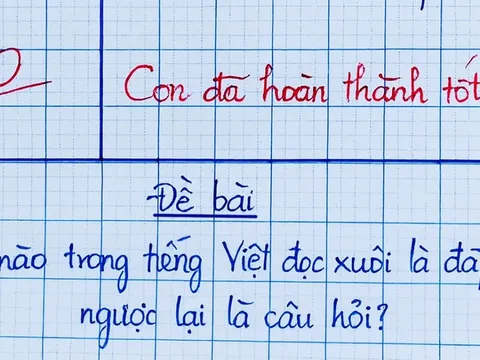 Con đã hoàn thành tốt
Đề bài
nào trong tiếng Việt đọc xuôi là đá
ngược lại là câu hỏi?